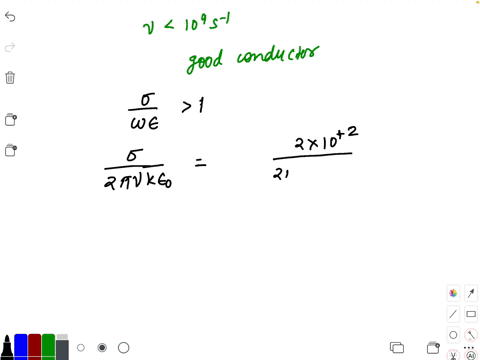 ν < 10⁹ s⁻¹
good conductor
σ/ωϵ > 1
σ/2πνKϵ₀ = 2×10⁺²/2